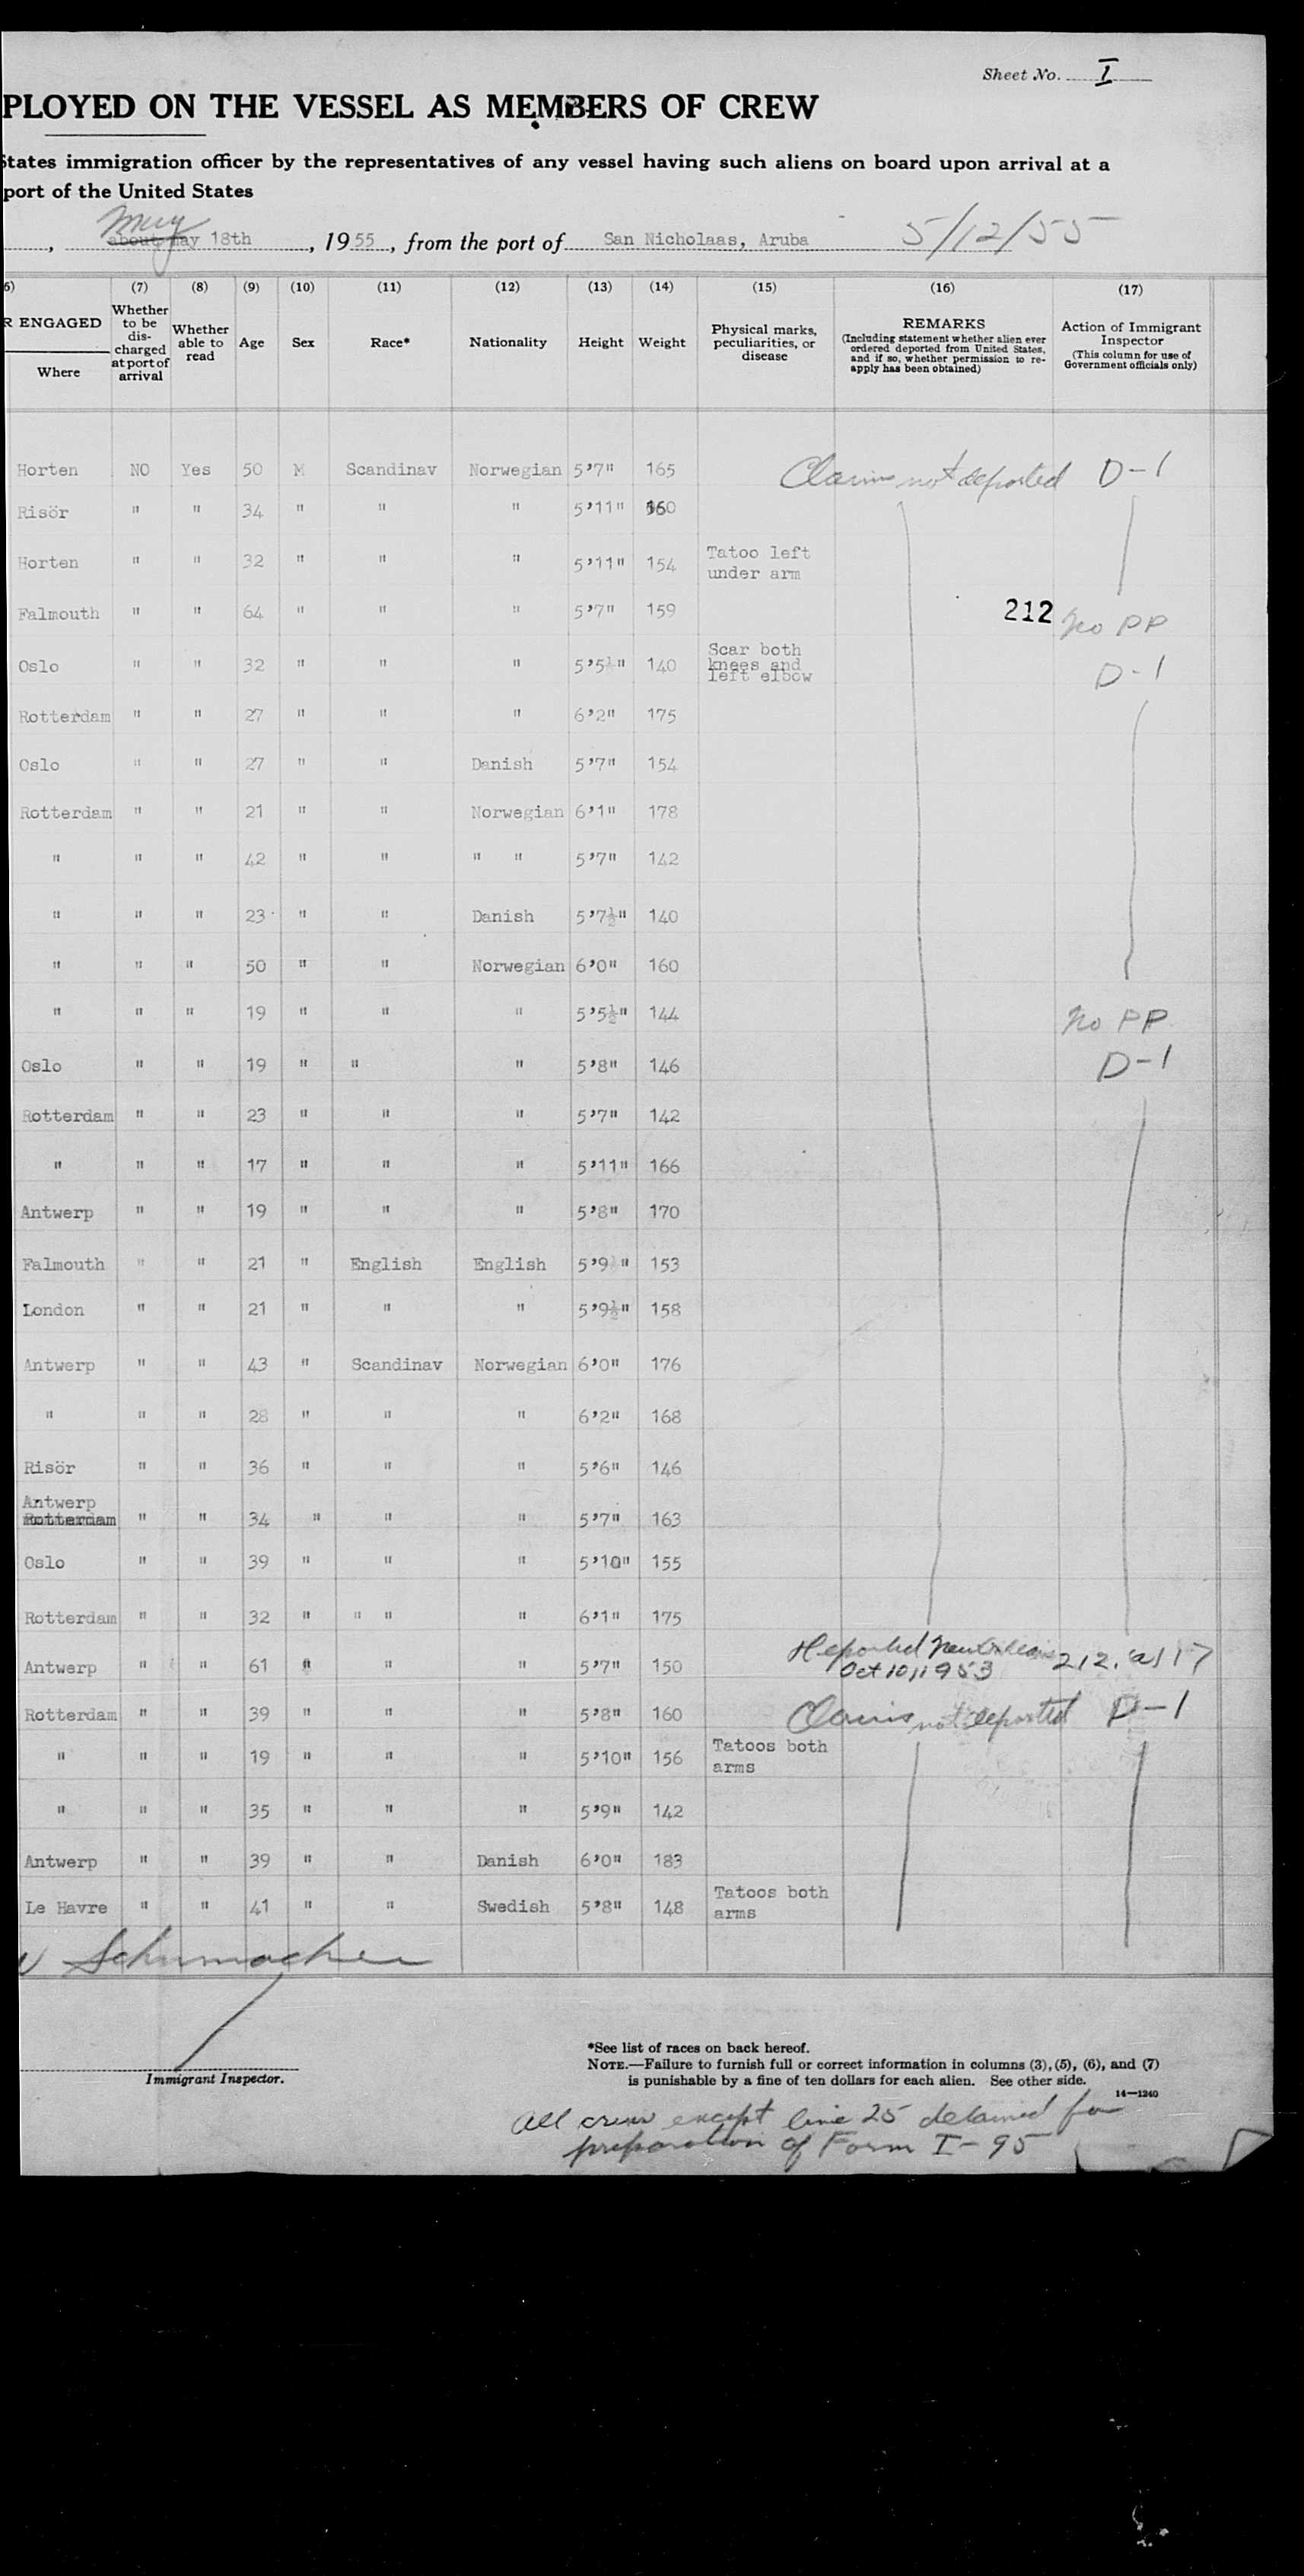 Sheet No. I
PLOYED ON THE VESSEL AS MEMBERS OF CREW
States immigration officer by the representatives of any vessel having such aliens on board upon arrival at a
port of the United States
, about May 18th , 1955 , from the port of San Nicholaas, Aruba 5/12/55
6) (7) (8) (9) (10) (11) (12) (13) (14) (15) (16) (17)
R ENGAGED
Where
Whether to be dis- charged at port of arrival
Whether able to read
Age
Sex
Race*
Nationality
Height
Weight
Physical marks, peculiarities, or disease
REMARKS
(Including statement whether alien ever ordered deported from United States, and if so, whether permission to re- apply has been obtained)
Action of Immigrant Inspector
(This column for use of Government officials only)
Horten NO Yes 50 M Scandinav Norwegian 5'7" 165 Claims not deported D-1
Risör " " 34 " " " 5'11" 160
Horten " " 32 " " " 5'11" 154 Tatoo left under arm
Falmouth " " 64 " " " 5'7" 159 212 No PP
Oslo " " 32 " " " 5'5½" 140 Scar both knees and left elbow D-1
Rotterdam " " 27 " " " 6'2" 175
Oslo " " 27 " " Danish 5'7" 154
Rotterdam " " 21 " " Norwegian 6'1" 178
" " " 42 " " " " 5'7" 142
" " " 23 " " Danish 5'7½" 140
" " " 50 " " Norwegian 6'0" 160
" " " 19 " " " 5'5½" 144 No PP
Oslo " " 19 " " " 5'8" 146 D-1
Rotterdam " " 23 " " " 5'7" 142
" " " 17 " " " 5'11" 166
Antwerp " " 19 " " " 5'8" 170
Falmouth " " 21 " English English 5'9½" 153
London " " 21 " " " 5'9½" 158
Antwerp " " 43 " Scandinav Norwegian 6'0" 176
" " " 28 " " " 6'2" 168
Risör " " 36 " " " 5'6" 146
Antwerp
Rotterdam " " 34 " " " 5'7" 163
Oslo " " 39 " " " 5'10" 155
Rotterdam " " 32 " " " " 6'1" 175
Antwerp " " 61 " " " 5'7" 150 Deported New Orleans Oct 10, 1953 212.(a) 17
Rotterdam " " 39 " " " 5'8" 160 Claims not deported D-1
" " " 19 " " " 5'10" 156 Tatoos both arms
" " " 35 " " " 5'9" 142
Antwerp " " 39 " " Danish 6'0" 183
Le Havre " " 41 " " Swedish 5'8" 148 Tatoos both arms
Schumacher
Immigrant Inspector.
*See list of races on back hereof.
NOTE.—Failure to furnish full or correct information in columns (3), (5), (6), and (7)
is punishable by a fine of ten dollars for each alien. See other side.
14—1240
All crew except line 25 detained for
preparation of Form I-95